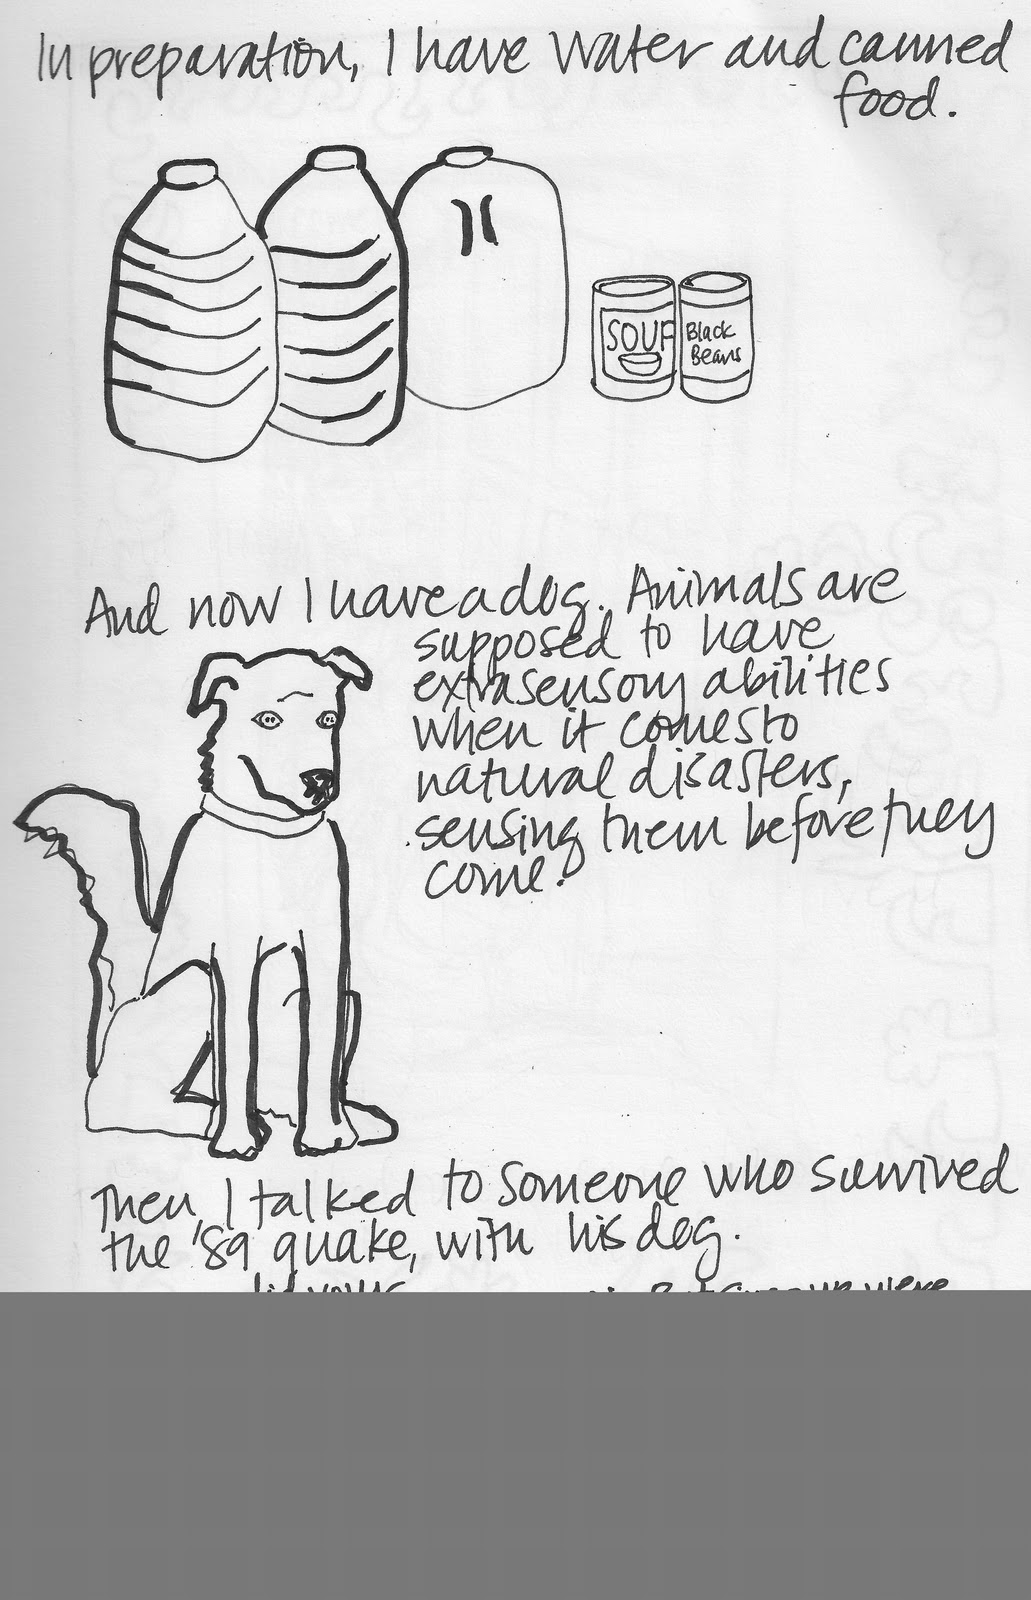 In preparation, I have water and canned
food.
SOUP
Black
Beans
And now I have a dog. Animals are
supposed to have
extrasensory abilities
when it comes to
natural disasters,
sensing them before they
come.
Then, I talked to someone who survived
the '89 quake, with his dog.